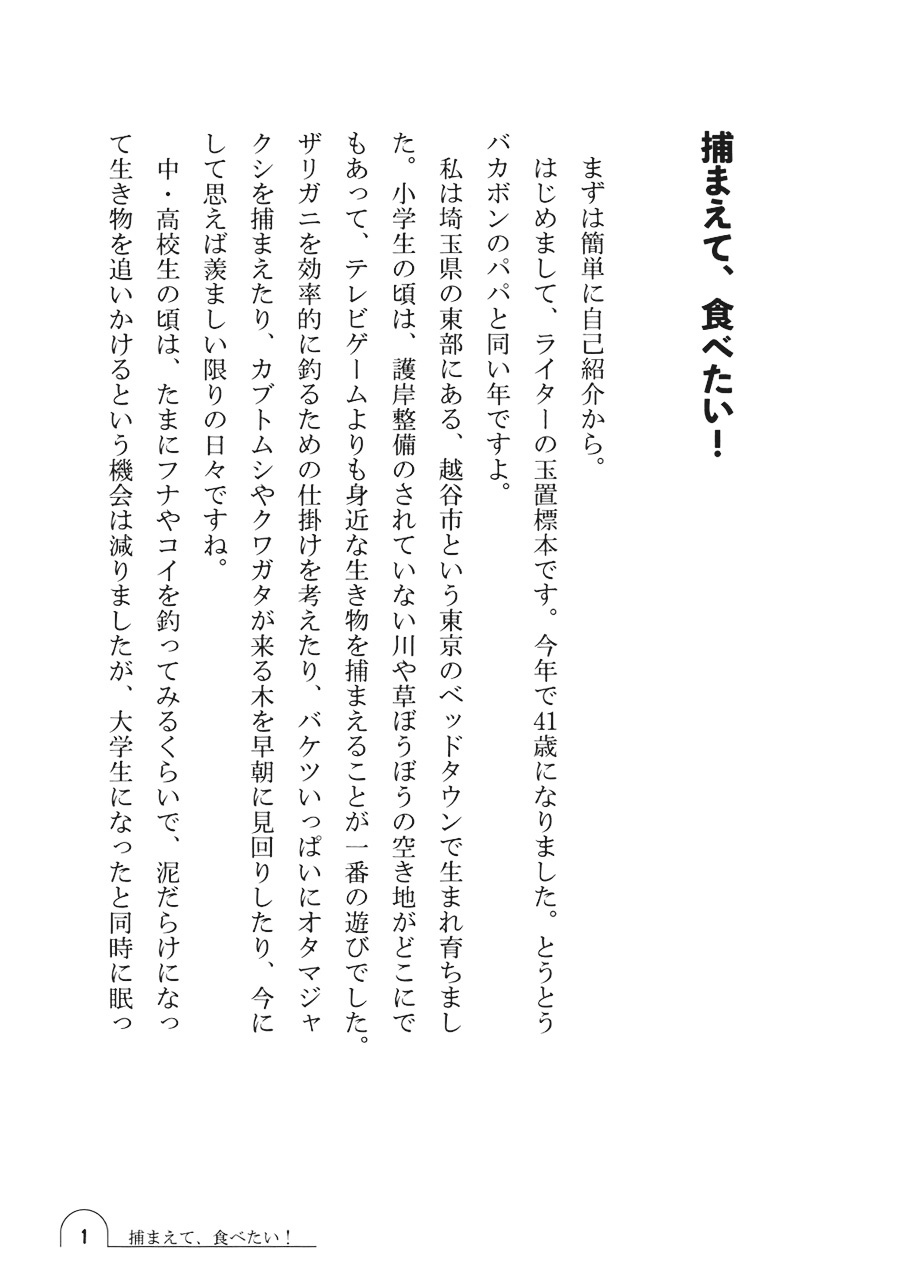 捕まえて、食べたい！
まずは簡単に自己紹介から。
はじめまして、ライターの玉置標本です。今年で41歳になりました。とうとう
バカボンのパパと同い年ですよ。
私は埼玉県の東部にある、越谷市という東京のベッドタウンで生まれ育ちまし
た。小学生の頃は、護岸整備のされていない川や草ぼうぼうの空き地がどこにで
もあって、テレビゲームよりも身近な生き物を捕まえることが一番の遊びでした。
ザリガニを効率的に釣るための仕掛けを考えたり、バケツいっぱいにオタマジャ
クシを捕まえたり、カブトムシやクワガタが来る木を早朝に見回りしたり、今に
して思えば羨ましい限りの日々ですね。
中・高校生の頃は、たまにフナやコイを釣ってみるくらいで、泥だらけになっ
て生き物を追いかけるという機会は減りましたが、大学生になったと同時に眠っ
1
捕まえて、食べたい！